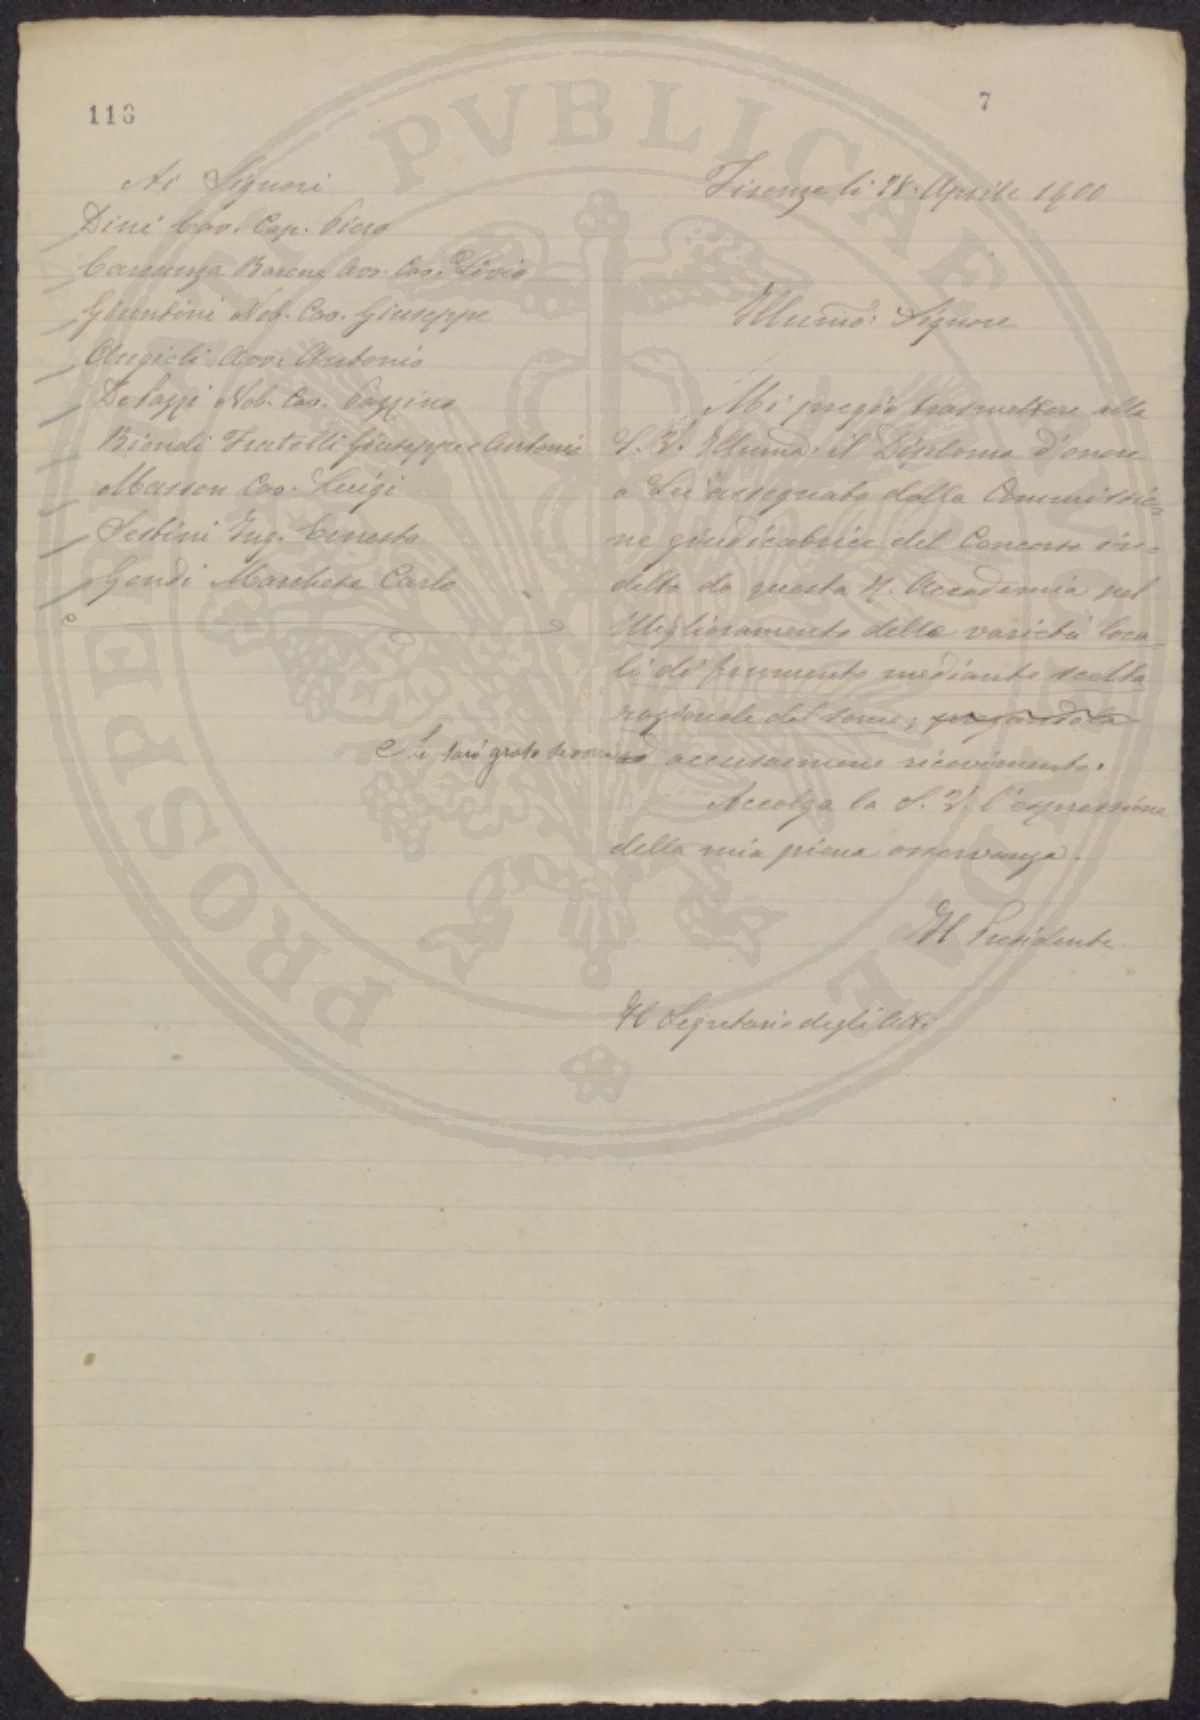 118
7
Ai Signori
Dini Cav. Cap. Piero
Carranza Barone Avv. Cav. Livio
Giuntini Nob. Cav. Giuseppe
Angioli Avv. Antonio
De Pazzi Nob. Cav. Pazzino
Biondi Fratelli Giuseppe e Antonio
Masson Cav. Luigi
Sestini Ing. Ernesto
Gondi Marchese Carlo
Firenze li 28. Aprile 1900
Illumo: Signore
Mi pregio trasmettere alla
S. V. Illuma: il Diploma d'onore
a Lei assegnato dalla Commissio-
ne giudicatrice del Concorso in-
detto da questa R. Accademia pel
Miglioramento delle varietà loca-
li di frumento mediante scelta
razionale del seme; pregandola
e Le sarò grato se vorrà accusarmene ricevimento.
Accolga la S. V. l'espressione
della mia piena osservanza.
Il Presidente
Il Segretario degli Atti
PROSPERITATI PVBLICAE AVGENDAE